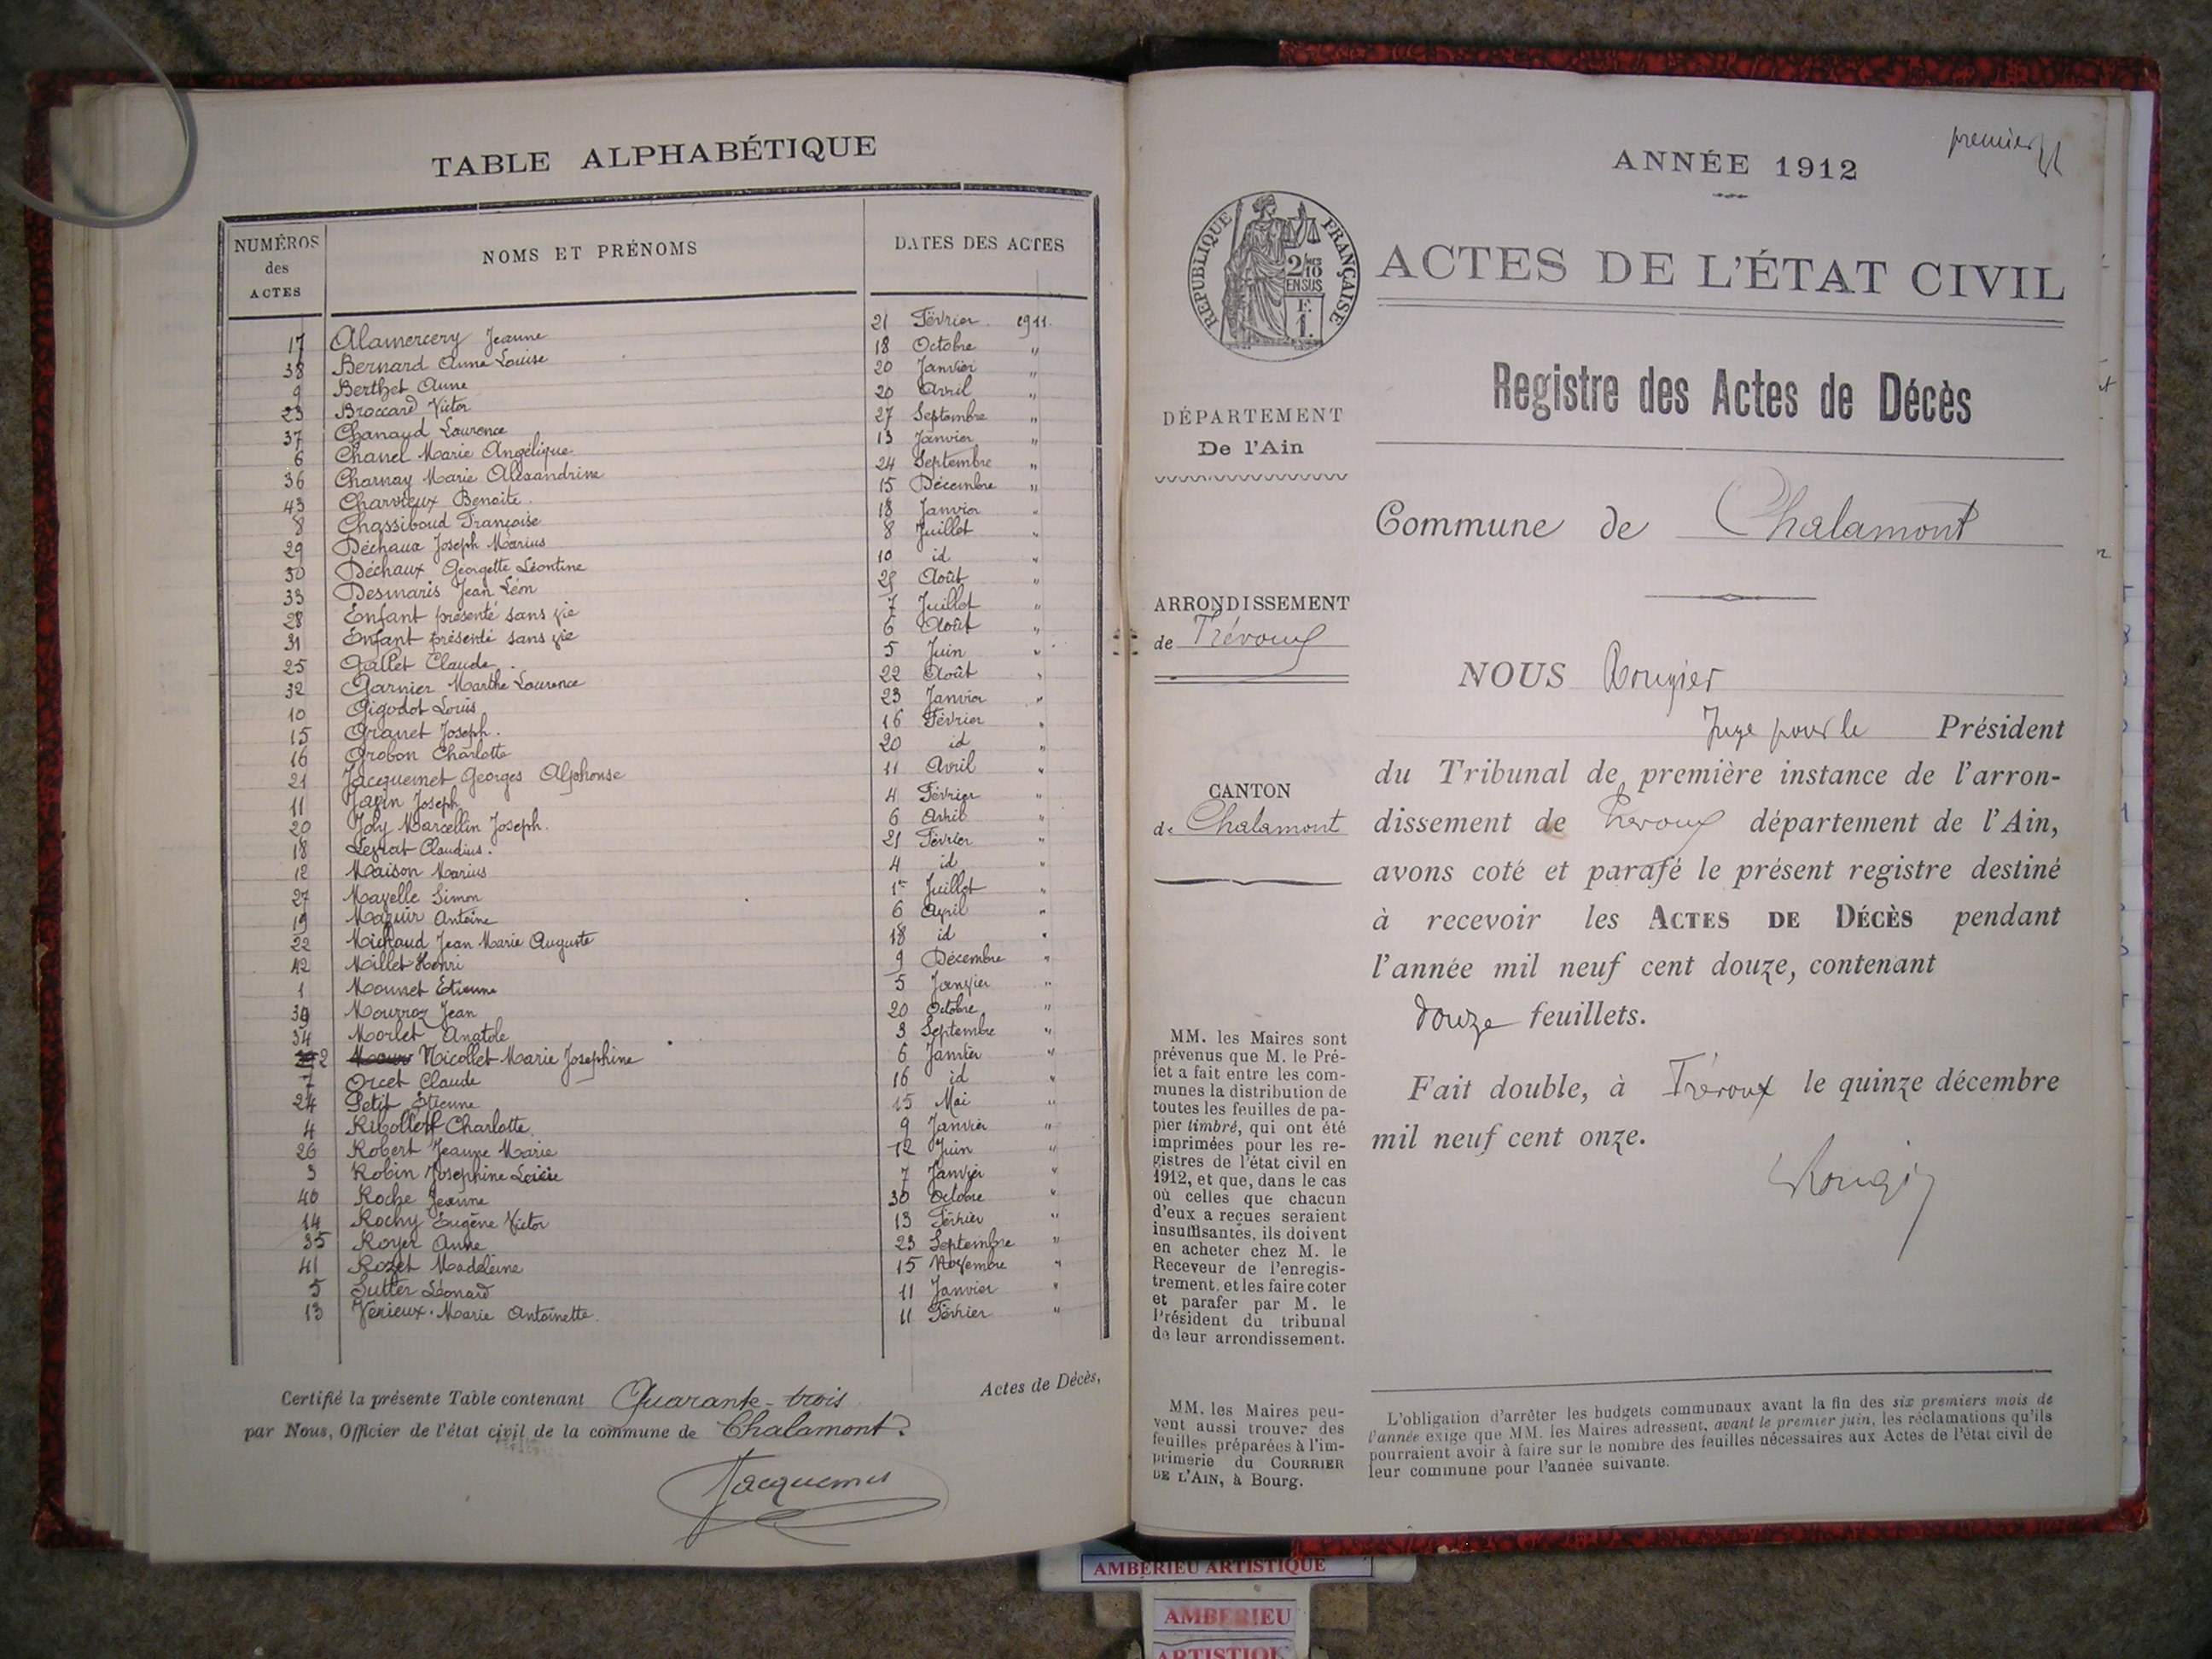 TABLE ALPHABÉTIQUE
NUMÉROS des ACTES NOMS ET PRÉNOMS DATES DES ACTES
17 Alamercery Jeanne 21 Février 1911.
38 Bernard Anne Louise 18 Octobre "
9 Berthet Anne 20 Janvier "
23 Broccard Victor 20 Avril "
37 Chanaud Laurence 27 Septembre "
6 Chanel Marie Angélique 13 Janvier "
36 Charnay Marie Alexandrine 24 Septembre "
43 Charvieux Benoite 15 Décembre "
8 Chassiboud Françoise 18 Janvier "
29 Déchaux Joseph Marius 8 Juillet "
30 Déchaux Georgette Léontine 10 id "
33 Desmaris Jean Léon 29 Août "
28 Enfant présenté sans vie 7 Juillet "
31 Enfant présenté sans vie 6 Août "
25 Gallet Claude 5 Juin "
32 Garnier Marthe Laurence 22 Août "
10 Gigodot Louis 23 Janvier "
15 Granet Joseph. 16 Février "
16 Grobon Charlotte 20 id "
21 Jacquemet Georges Alphonse 11 Avril "
11 Joseph 4 Février "
20 Joly Marcellin Joseph. 6 Avril "
18 Claudius. 21 Février "
12 Maison Marius 4 id "
27 Mayelle Simon 1er Juillet "
19 Antoine 6 Avril "
22 Michaud Jean Marie Auguste 18 id "
42 Millet Henri 9 Décembre "
1 Monnet Etienne 5 Janvier "
39 Mourroz Jean 20 Octobre "
34 Morlet Anatole 3 Septembre "
2 Nicollet Marie Josephine 6 Janvier "
7 Orcet Claude 16 id "
24 Petit Etienne 15 Mai "
4 Ribollet Charlotte 9 Janvier "
26 Robert Jeanne Marie 12 Juin "
3 Robin Josephine 7 Janvier "
40 Roche Jeanne 30 Octobre "
14 Rochy Eugène Victor 13 Février "
35 Royer Anne 23 Septembre "
41 Rozet Madeleine 15 Novembre "
5 Sutter Léonard 11 Janvier "
13 Vérieux Marie Antoinette. 11 Février "
Certifié la présente Table contenant Quarante-trois Actes de Décès,
par Nous, Officier de l'état civil de la commune de Chalamont.
Jacquemet
premier
ANNÉE 1912
RÉPUBLIQUE FRANÇAISE
2/10 EN SUS
F.
1.
ACTES DE L'ÉTAT CIVIL
Registre des Actes de Décès
DÉPARTEMENT
De l'Ain
Commune de Chalamont
ARRONDISSEMENT
de Trévoux
CANTON
de Chalamont
MM. les Maires sont
prévenus que M. le Pré-
fet a fait entre les com-
munes la distribution de
toutes les feuilles de pa-
pier timbré, qui ont été
imprimées pour les re-
gistres de l'état civil en
1912, et que, dans le cas
où celles que chacun
d'eux a reçues seraient
insuffisantes, ils doivent
en acheter chez M. le
Receveur de l'enregis-
trement, et les faire coter
et parafer par M. le
Président du tribunal
de leur arrondissement.
MM. les Maires peu-
vent aussi trouver des
feuilles préparées à l'im-
primerie du COURRIER
DE L'AIN, à Bourg.
NOUS Rougier
Juge pour le Président
du Tribunal de première instance de l'arron-
dissement de Trévoux département de l'Ain,
avons coté et parafé le présent registre destiné
à recevoir les ACTES DE DÉCÈS pendant
l'année mil neuf cent douze, contenant
douze feuillets.
Fait double, à Trévoux le quinze décembre
mil neuf cent onze.
Rougier
L'obligation d'arrêter les budgets communaux avant la fin des six premiers mois de
l'année exige que MM. les Maires adressent, avant le premier juin, les réclamations qu'ils
pourraient avoir à faire sur le nombre des feuilles nécessaires aux Actes de l'état civil de
leur commune pour l'année suivante.
AMBERIEU ARTISTIQUE
AMBERIEU
ARTISTIQUE